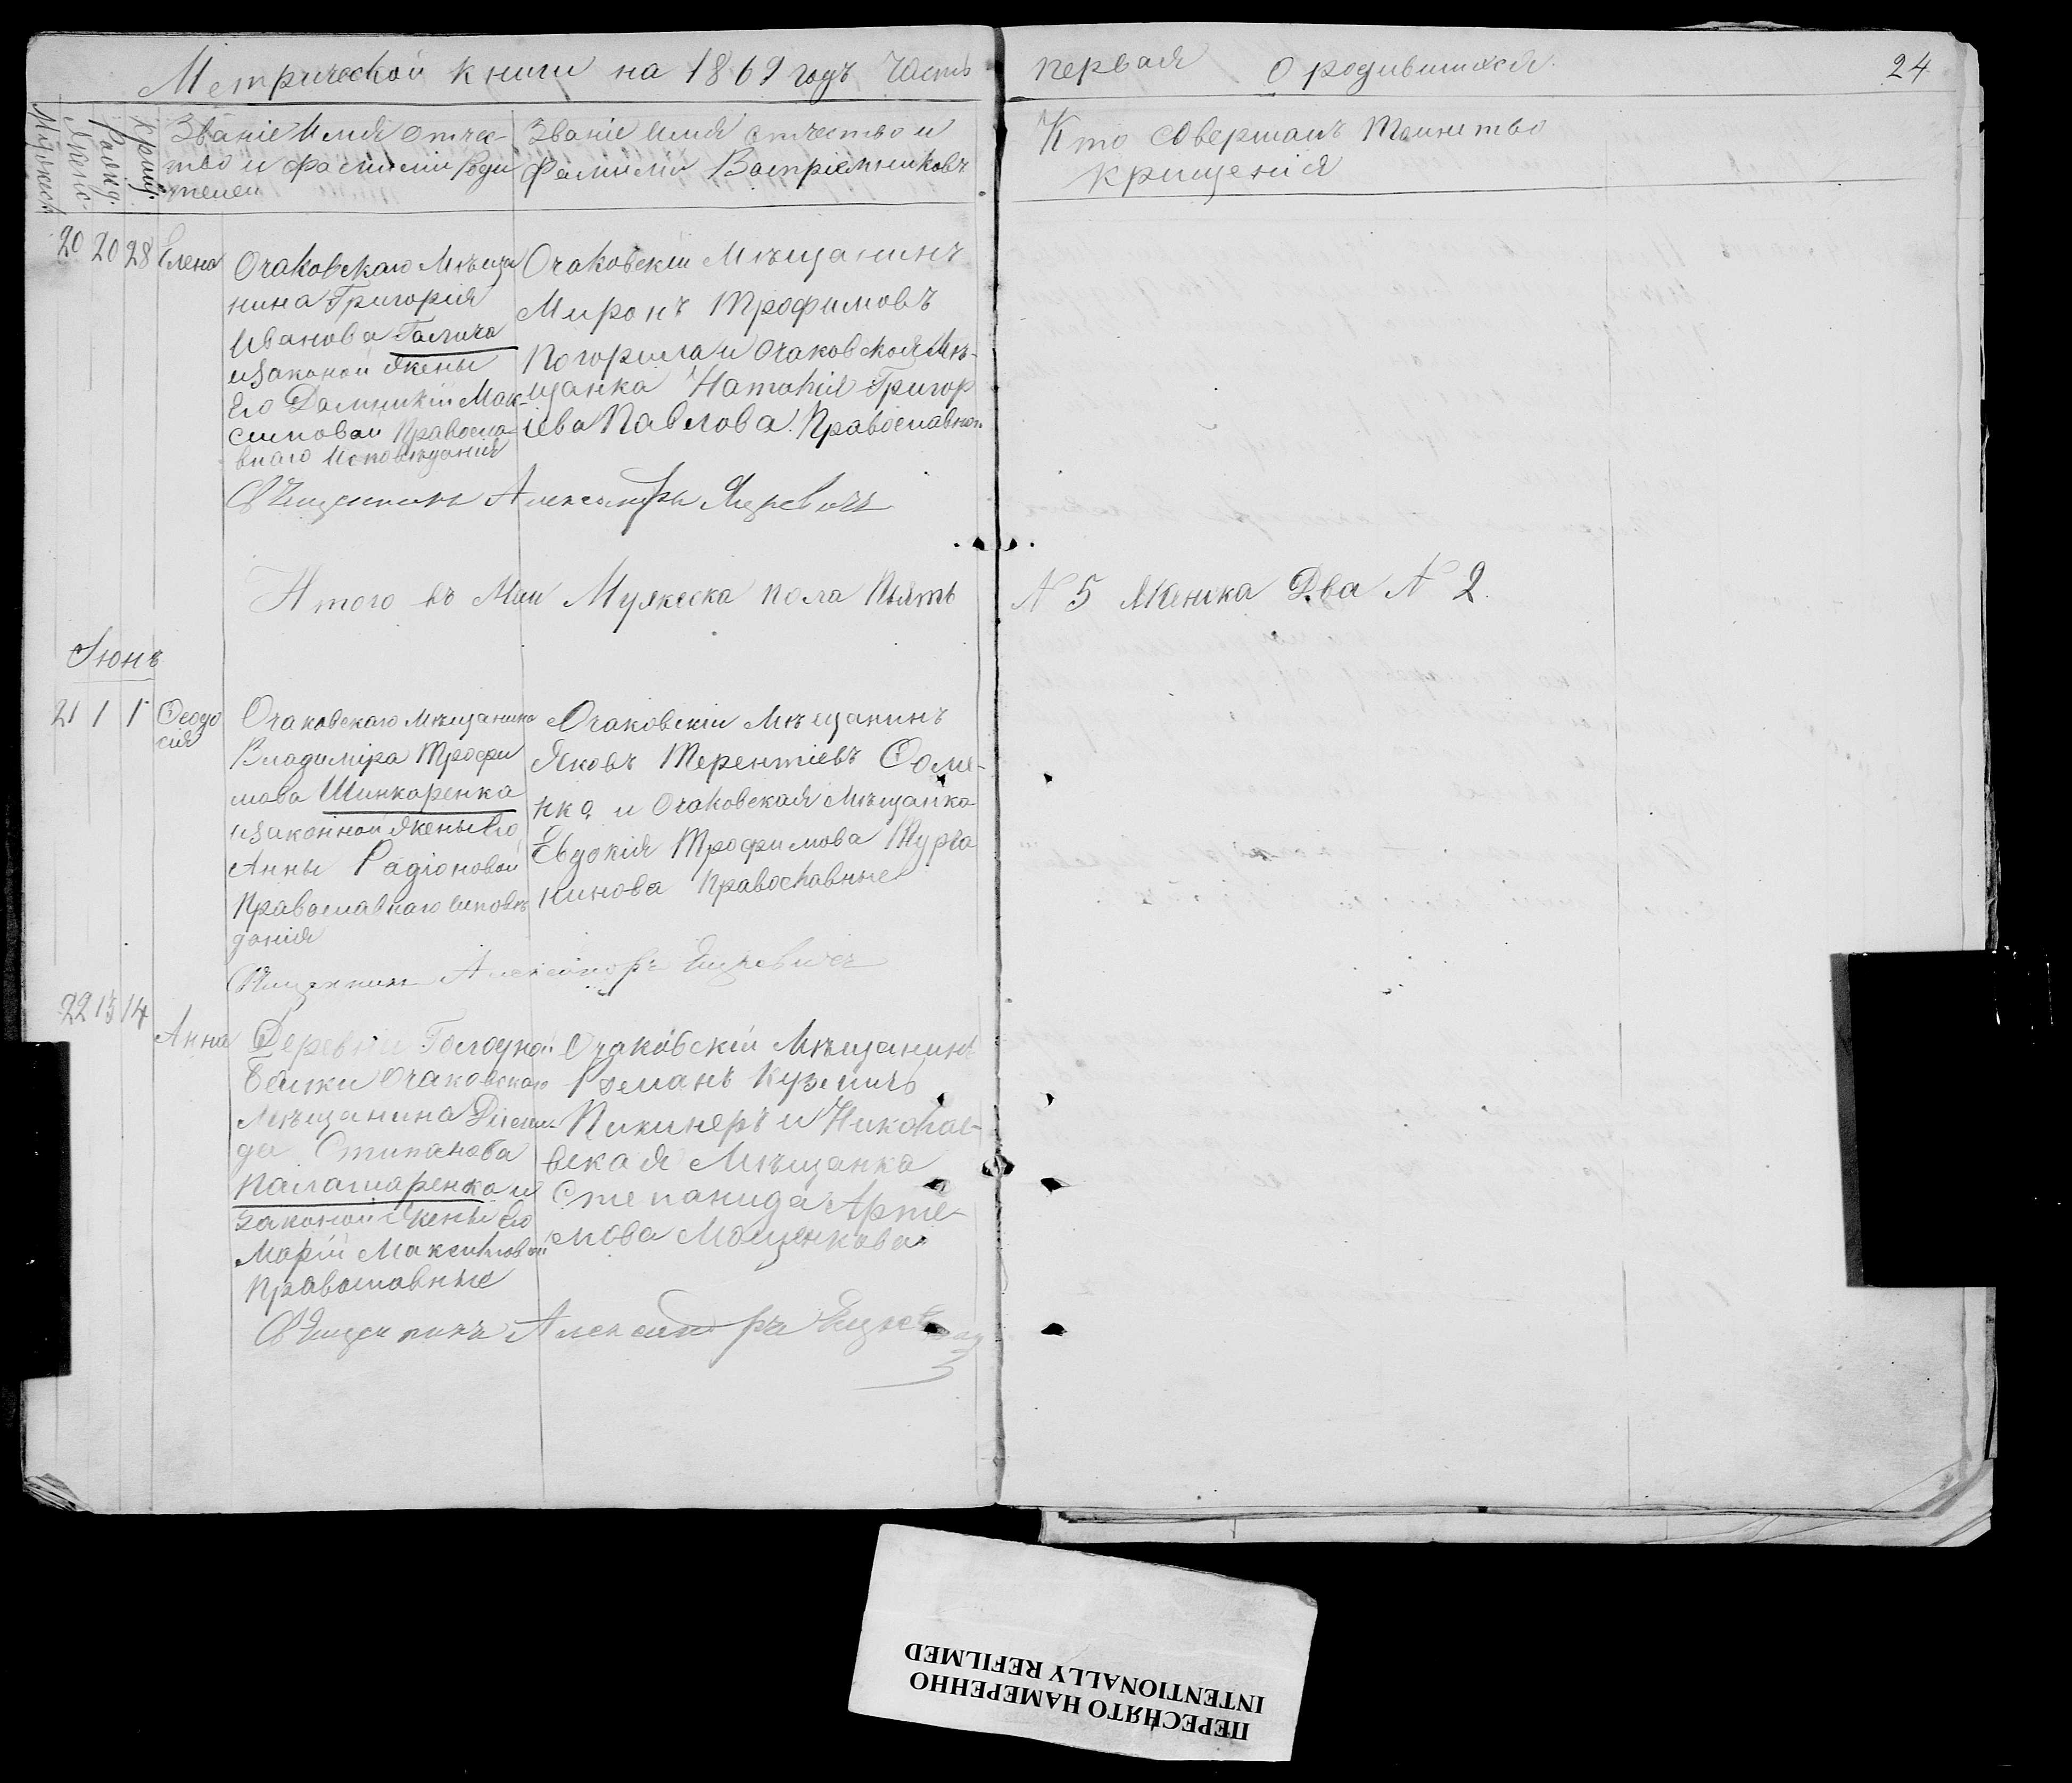 Метрической книги на 1869 годъ Часть первая О родившихся. 24
Мужеск.
Женс.
Рожд.
Крещ.
Званіе Имя отчес-
тво и фамиліи роди
телей
Званіе имя отчество и
фамилія Воспріемниковъ
Кто совершалъ Таинство
крищенія
20 20 28 Елена
Очаковскаго Мѣща
нина Григорія
Иванова Галича
изаконой жены
Его Домникіи Мак-
симовой Правосла-
внаго Исповѣданія
Очаковскій Мѣщанинъ
Миронъ Трофимовъ
Погорила и Очаковской Мѣ-
щанка Наталія Григор
іева Павлова. Православнаго
Священникъ Александръ Яцкевичъ
Итого въ Маи Мужеска пола Пьять N 5 Женска Два N 2.
Іюнь
21 1 1 Феодо
сія
Очаковскаго Мѣщанина
Владиміра Трофи
мова Шинкаренка
изаконной жены Его
Анны Радіоновой
Православнаго исповѣ
данія
Очаковскіи Мѣщанинъ
Яковъ Терентіевъ Соме-
нка и Очаковская Мѣщанка
Евдокія Трофимова Турча
нинова Православные
Священникъ Александръ Яцкевичъ
22 13 14
Анна
Деревни Голодной
Балки Очаковскаго
Мѣщанина
да Стипанова
Паламаренка и
Законой Жены Его
Маріи Максимовой
Православные
Очаковскіи Мѣщанинъ
Романъ Кузмичъ
Пикинеръ и Николае-
вская Мѣщанка
Степанида Арте-
мова Моценкова
Священникъ Александръ Яцкевичъ
ПЕРЕСНЯТО НАМЕРЕННО
INTENTIONALLY REFILMED